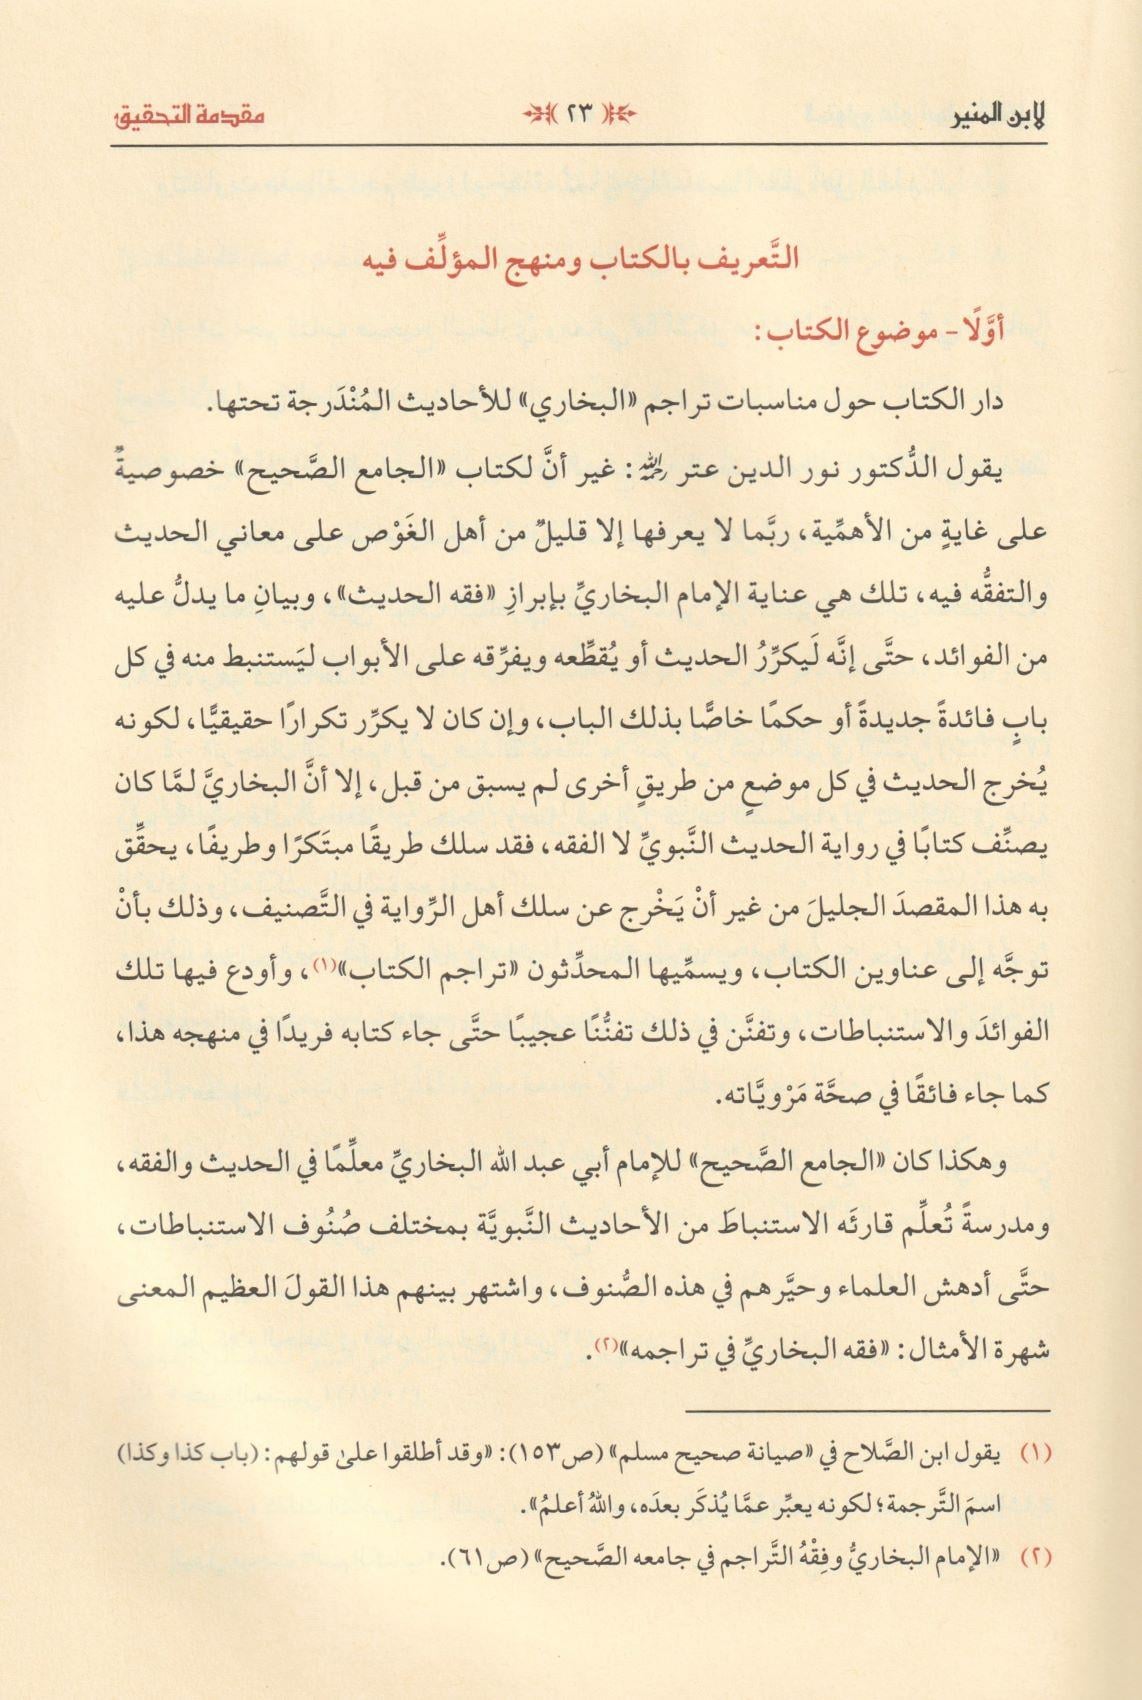 لابن المنير ٢٣ مقدمة التحقيق
التَّعريف بالكتاب ومنهج المؤلِّف فيه
أوَّلًا - موضوع الكتاب:
دار الكتاب حول مناسبات تراجم «البخاري» للأحاديث المُنْدَرجة تحتها.
يقول الدُّكتور نور الدين عتر رحمه الله: غير أنَّ لكتاب «الجامع الصَّحيح» خصوصيةً
على غايةٍ من الأهمِّية، ربَّما لا يعرفها إلا قليلٌ من أهل الغَوْص على معاني الحديث
والتفقُّه فيه، تلك هي عناية الإمام البخاريِّ بإبرازِ «فقه الحديث»، وبيانِ ما يدلُّ عليه
من الفوائد، حتَّى إنَّه لَيكرِّرُ الحديث أو يُقطِّعه ويفرِّقه على الأبواب ليَستنبط منه في كل
بابٍ فائدةً جديدةً أو حكمًا خاصًّا بذلك الباب، وإن كان لا يكرِّر تكرارًا حقيقيًّا، لكونه
يُخرج الحديث في كل موضعٍ من طريقٍ أخرى لم يسبق من قبل، إلا أنَّ البخاريَّ لمَّا كان
يصنِّف كتابًا في رواية الحديث النَّبويِّ لا الفقه، فقد سلك طريقًا مبتَكرًا وطريفًا، يحقِّق
به هذا المقصدَ الجليلَ من غير أنْ يَخْرج عن سلك أهل الرِّواية في التَّصنيف، وذلك بأنْ
توجَّه إلى عناوين الكتاب، ويسمِّيها المحدِّثون «تراجم الكتاب»(١)، وأودع فيها تلك
الفوائدَ والاستنباطات، وتفنَّن في ذلك تفنُّنًا عجيبًا حتَّى جاء كتابه فريدًا في منهجه هذا،
كما جاء فائقًا في صحَّة مَرْويَّاته.
وهكذا كان «الجامع الصَّحيح» للإمام أبي عبد الله البخاريِّ معلِّمًا في الحديث والفقه،
ومدرسةً تُعلِّم قارئَه الاستنباطَ من الأحاديث النَّبويَّة بمختلف صُنُوف الاستنباطات،
حتَّى أدهش العلماء وحيَّرهم في هذه الصُّنوف، واشتهر بينهم هذا القولَ العظيم المعنى
شهرة الأمثال: «فقه البخاريِّ في تراجمه»(٢).
(١) يقول ابن الصَّلاح في «صيانة صحيح مسلم» (ص١٥٣): «وقد أطلقوا علىٰ قولهم: (باب كذا وكذا)
اسمَ التَّرجمة؛ لكونه يعبِّر عمَّا يُذكَر بعدَه، واللهُ أعلمُ».
(٢) «الإمام البخاريُّ وفِقْهُ التَّراجم في جامعه الصَّحيح» (ص٦١).